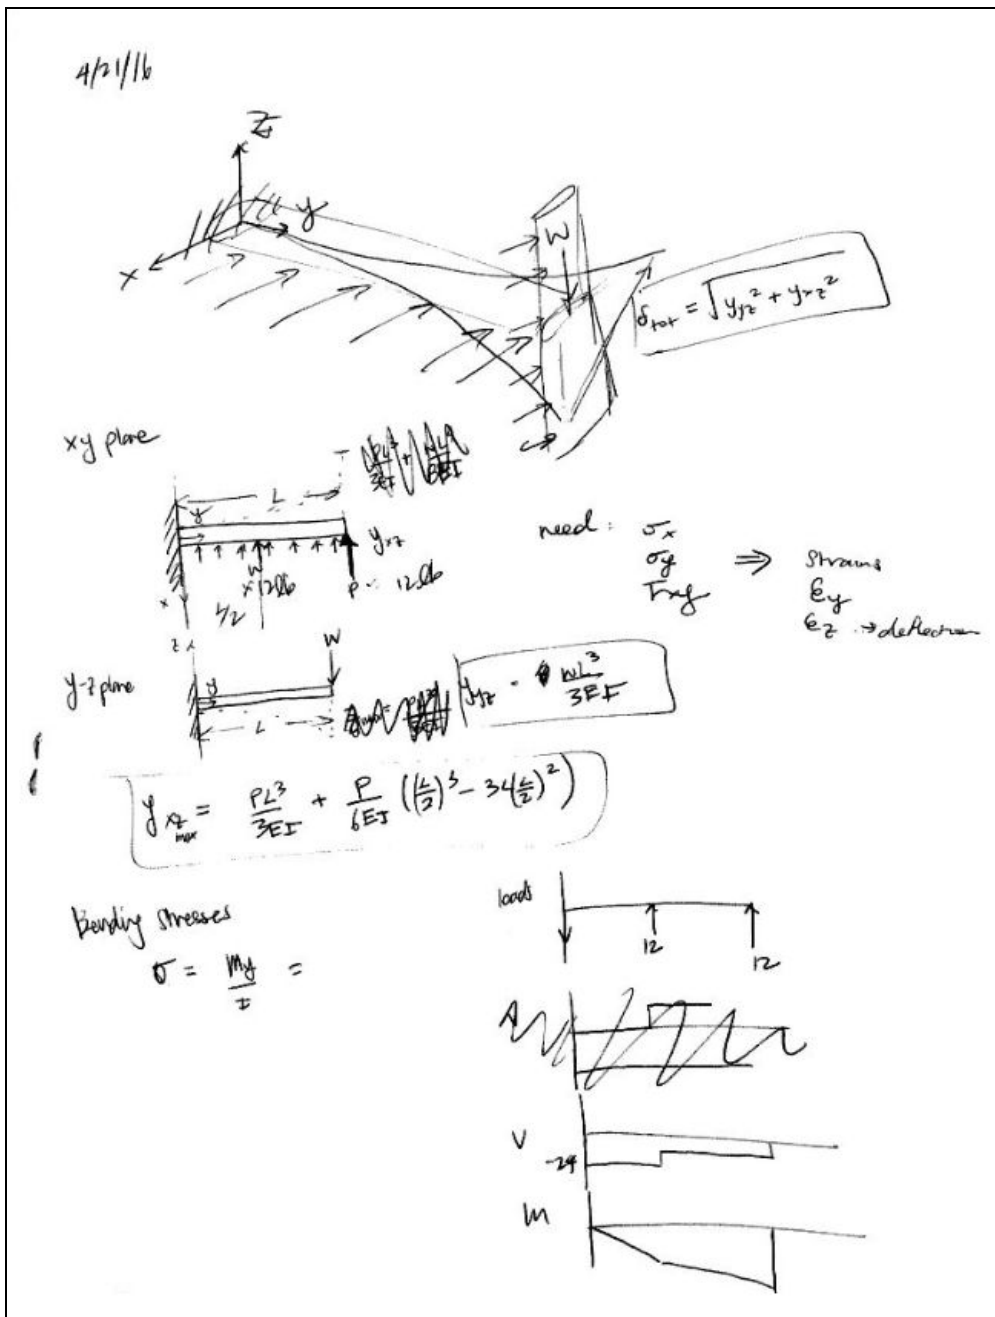 4/21/16
Z
y
x
W
δtot = √(y_yz² + y_xz²)
xy plane
L
y
y_xz
W
12lb
P = 12lb
x
L/2
need: σx
σy ⇒ strains
τxy εy
εz → deflection
z
W
y-z plane
y
L
y_yz = WL³/3EI
y_xz max = PL³/3EI + P/6EI ((L/2)³ - 3L(L/2)²)
loads
12
12
Bending stresses
σ = My/I =
V
-24
M